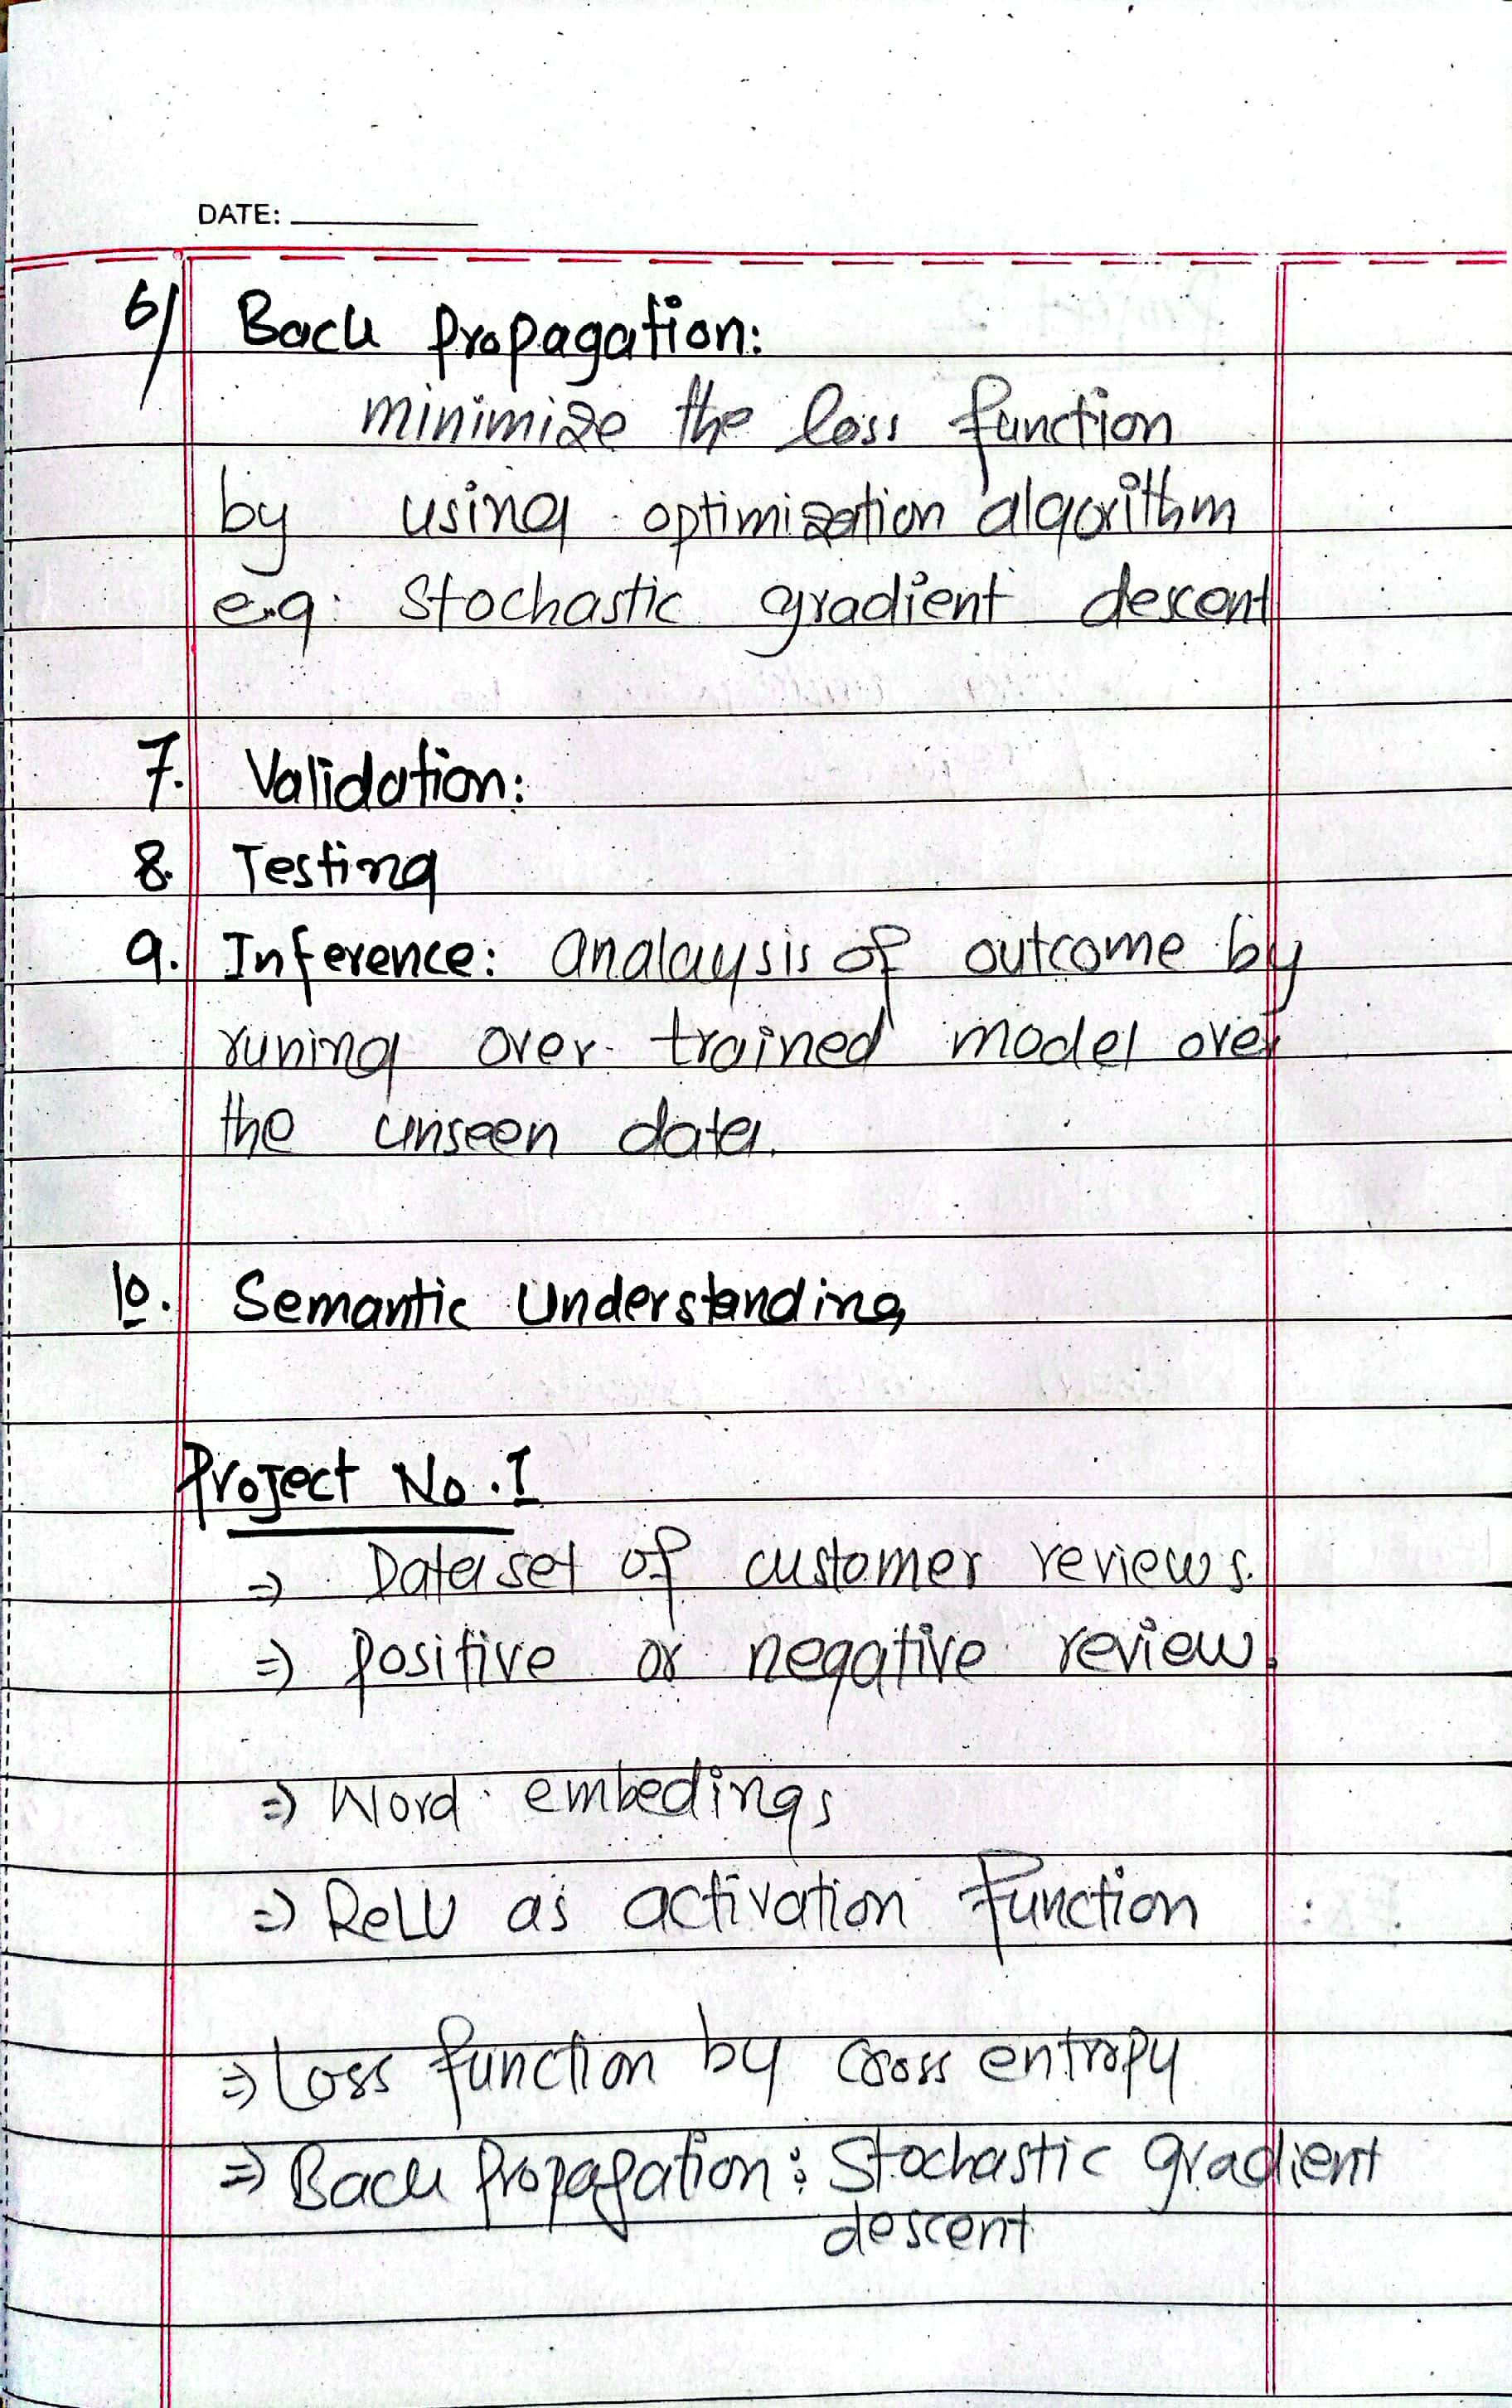 DATE:
6) Back Propagation:
minimize the loss function
by using optimization algorithm
e.g: Stochastic gradient descent
7. Validation:
8. Testing
9. Inference: analaysis of outcome by
runing over trained model over
the unseen data.
10. Semantic Understanding
Project No.1
=> Dataset of customer reviews.
=> Positive or negative review.
=> Word embedings
=> ReLU as activation function
=> Loss function by cross entropy
=> Back Propagation: Stochastic gradient
descent